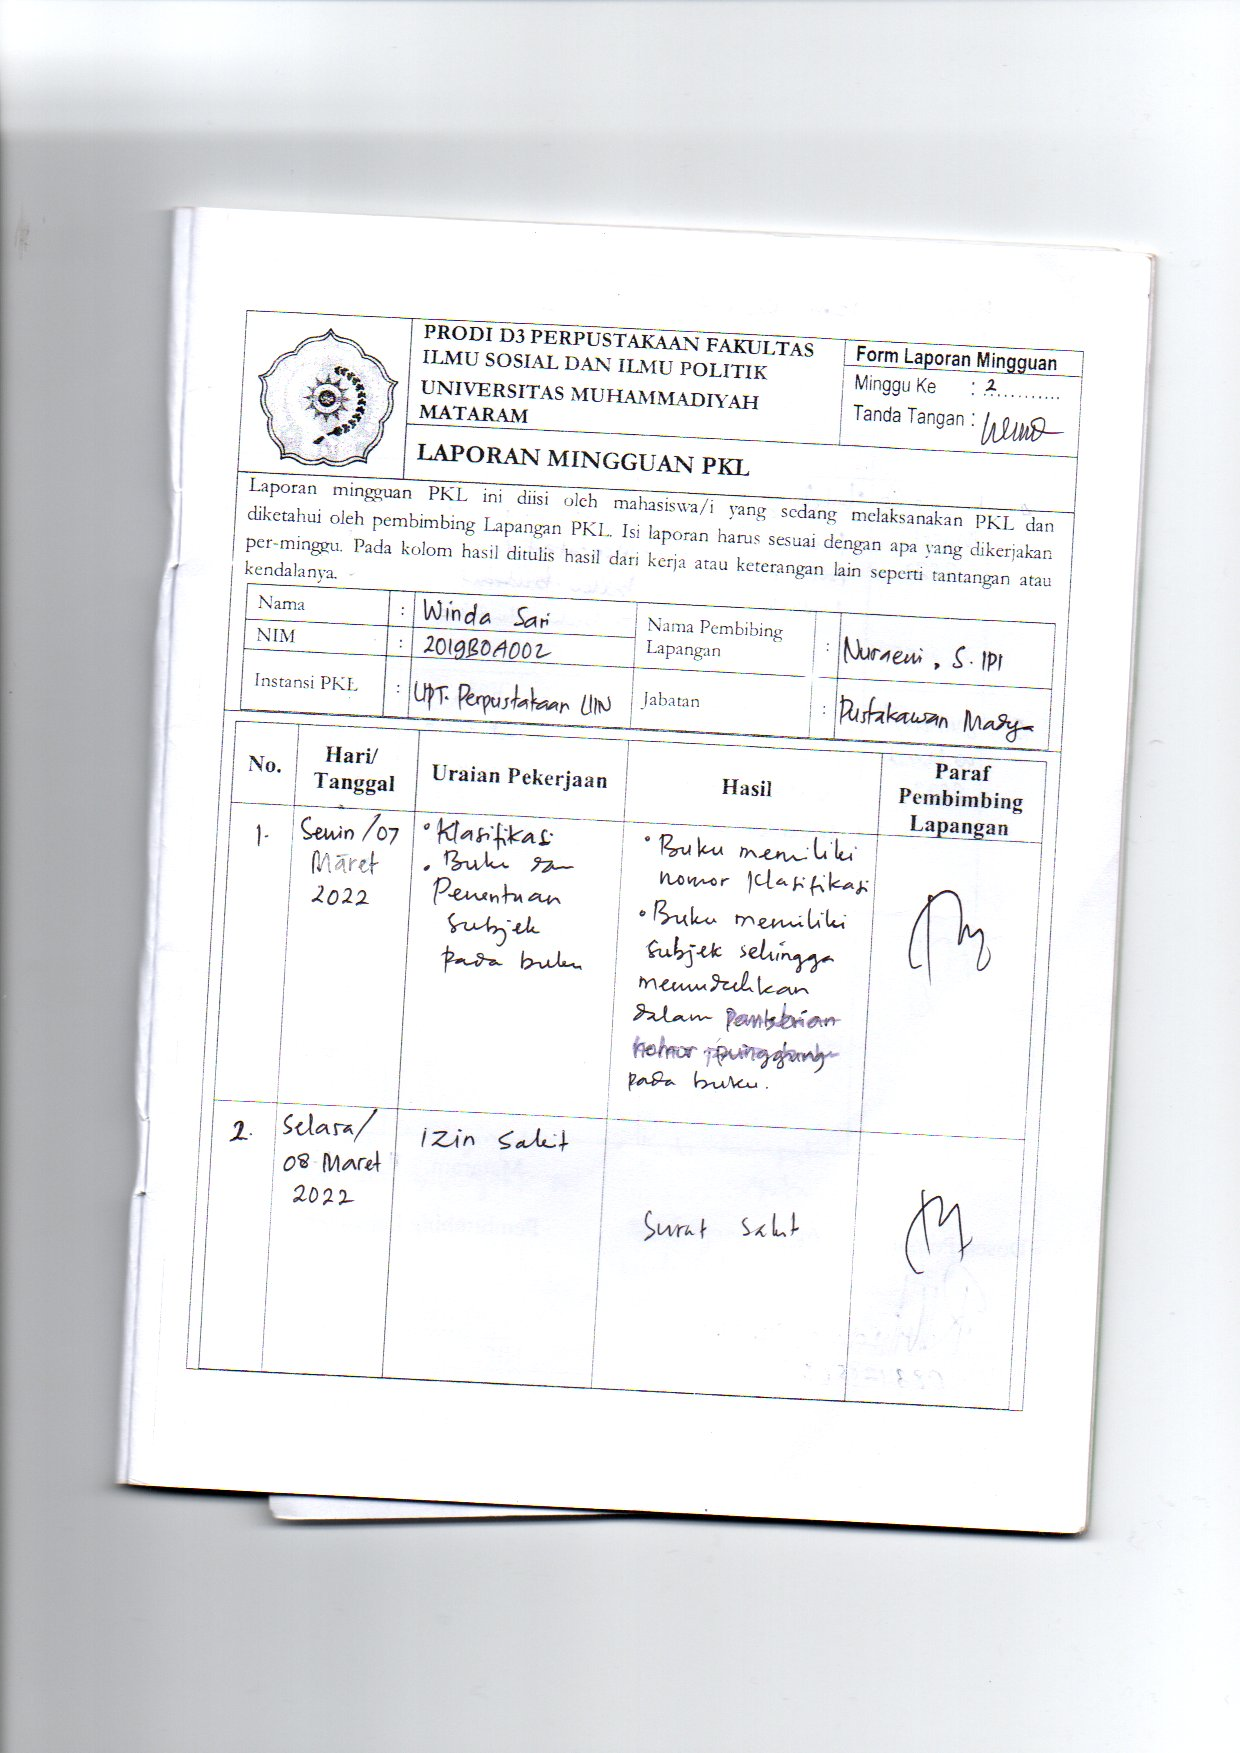 PRODI D3 PERPUSTAKAAN FAKULTAS
ILMU SOSIAL DAN ILMU POLITIK
UNIVERSITAS MUHAMMADIYAH
MATARAM
LAPORAN MINGGUAN PKL
Form Laporan Mingguan
Minggu Ke : 2...........
Tanda Tangan :
Laporan mingguan PKL ini diisi oleh mahasiswa/i yang sedang melaksanakan PKL dan
diketahui oleh pembimbing Lapangan PKL. Isi laporan harus sesuai dengan apa yang dikerjakan
per-minggu. Pada kolom hasil ditulis hasil dari kerja atau keterangan lain seperti tantangan atau
kendalanya.
Nama : Winda Sari
NIM : 2019B0A002
Instansi PKL : UPT. Perpustakaan UIN
Nama Pembibing
Lapangan : Nuraeni, S.IPI
Jabatan : Pustakawan Madya
No.
Hari/
Tanggal
Uraian Pekerjaan
Hasil
Paraf
Pembimbing
Lapangan
1.
Senin /07
Maret
2022
• Klasifikasi
• Buku dan
Penentuan
Subjek
pada buku
• Buku memiliki
nomor klasifikasi
• Buku memiliki
subjek sehingga
memudahkan
dalam pemberian
nomor punggung
pada buku.
2.
Selasa/
08 Maret
2022
izin sakit
Surat sakit